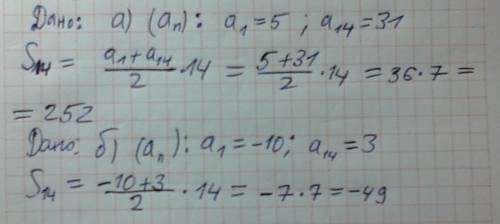 Дано: а) (aₙ): a₁ = 5 ; a₁₄ = 31
S₁₄ = (a₁ + a₁₄)/2 · 14 = (5 + 31)/2 · 14 = 36 · 7 =
= 252
Дано: б) (aₙ): a₁ = -10; a₁₄ = 3
S₁₄ = (-10 + 3)/2 · 14 = -7 · 7 = -49